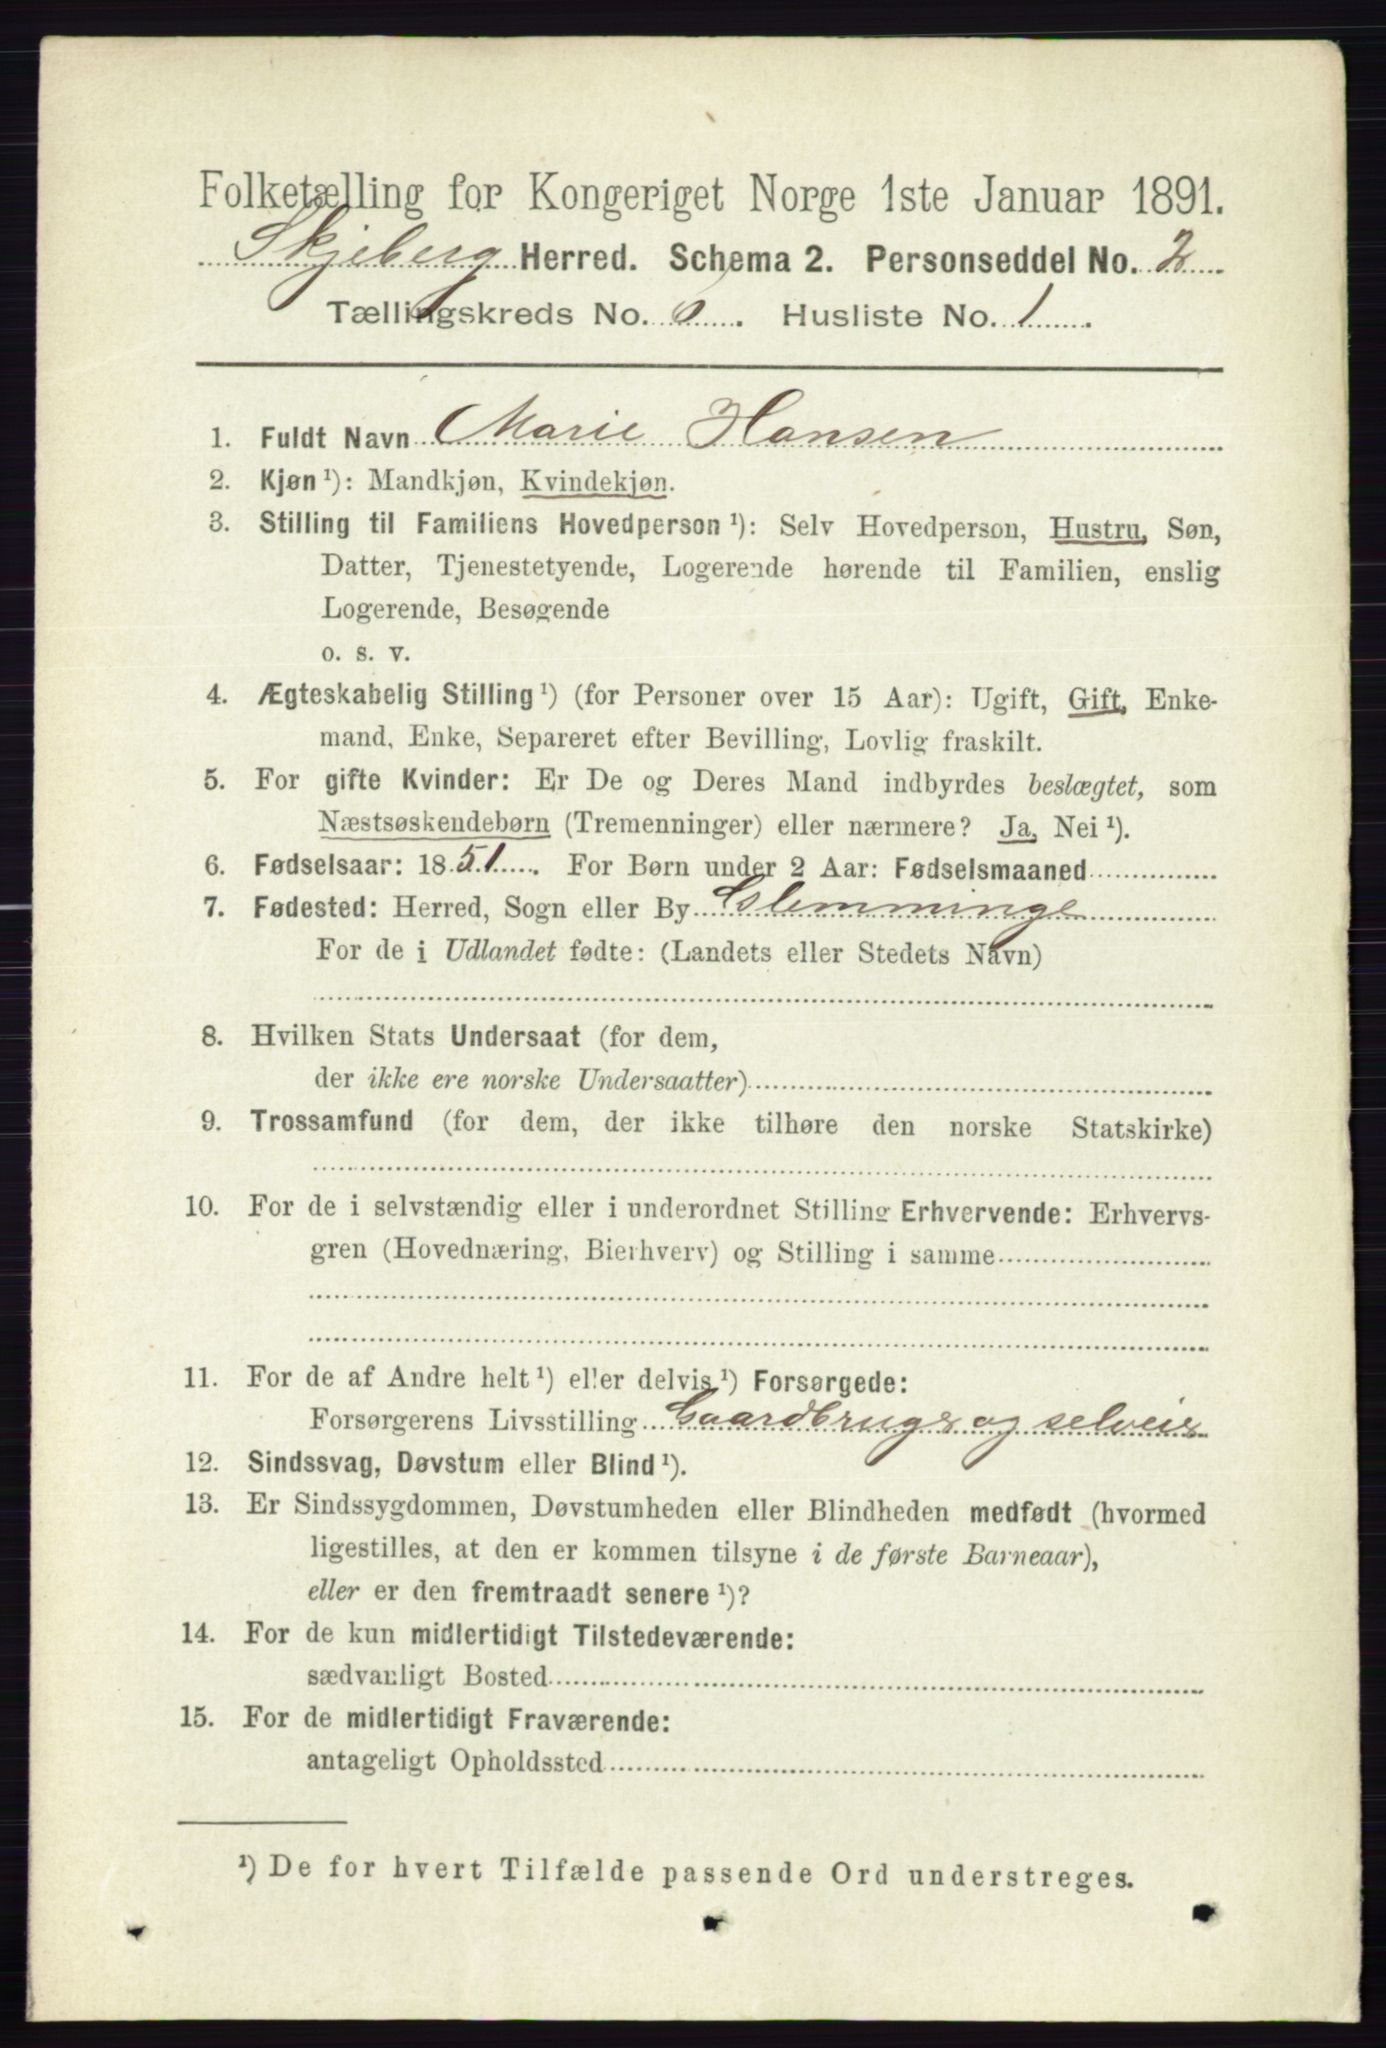 Folketælling for Kongeriget Norge 1ste Januar 1891.
Skjeberg Herred. Schema 2. Personseddel No. 2
Tællingskreds No. 6. Husliste No. 1.
1. Fuldt Navn Marie Hansen
2. Kjøn ¹): Mandkjøn, Kvindekjøn.
3. Stilling til Familiens Hovedperson ¹): Selv Hovedperson, Hustru, Søn,
Datter, Tjenestetyende, Logerende hørende til Familien, enslig
Logerende, Besøgende
o. s. v.
4. Ægteskabelig Stilling ¹) (for Personer over 15 Aar): Ugift, Gift, Enke-
mand, Enke, Separeret efter Bevilling, Lovlig fraskilt.
5. For gifte Kvinder: Er De og Deres Mand indbyrdes beslægtet, som
Næstsøskendebørn (Tremenninger) eller nærmere? Ja, Nei ¹).
6. Fødselsaar: 1851. For Børn under 2 Aar: Fødselsmaaned
7. Fødested: Herred, Sogn eller By Glemminge
For de i Udlandet fødte: (Landets eller Stedets Navn)
8. Hvilken Stats Undersaat (for dem,
der ikke ere norske Undersaatter)
9. Trossamfund (for dem, der ikke tilhøre den norske Statskirke)
10. For de i selvstændig eller i underordnet Stilling Erhvervende: Erhvervs-
gren (Hovednæring, Bierhverv) og Stilling i samme
11. For de af Andre helt ¹) eller delvis ¹) Forsørgede:
Forsørgerens Livsstilling Gaardbruger og selveier
12. Sindssvag, Døvstum eller Blind ¹).
13. Er Sindssygdommen, Døvstumheden eller Blindheden medfødt (hvormed
ligestilles, at den er kommen tilsyne i de første Barneaar),
eller er den fremtraadt senere ¹)?
14. For de kun midlertidigt Tilstedeværende:
sædvanligt Bosted
15. For de midlertidigt Fraværende:
antageligt Opholdssted
¹) De for hvert Tilfælde passende Ord understreges.